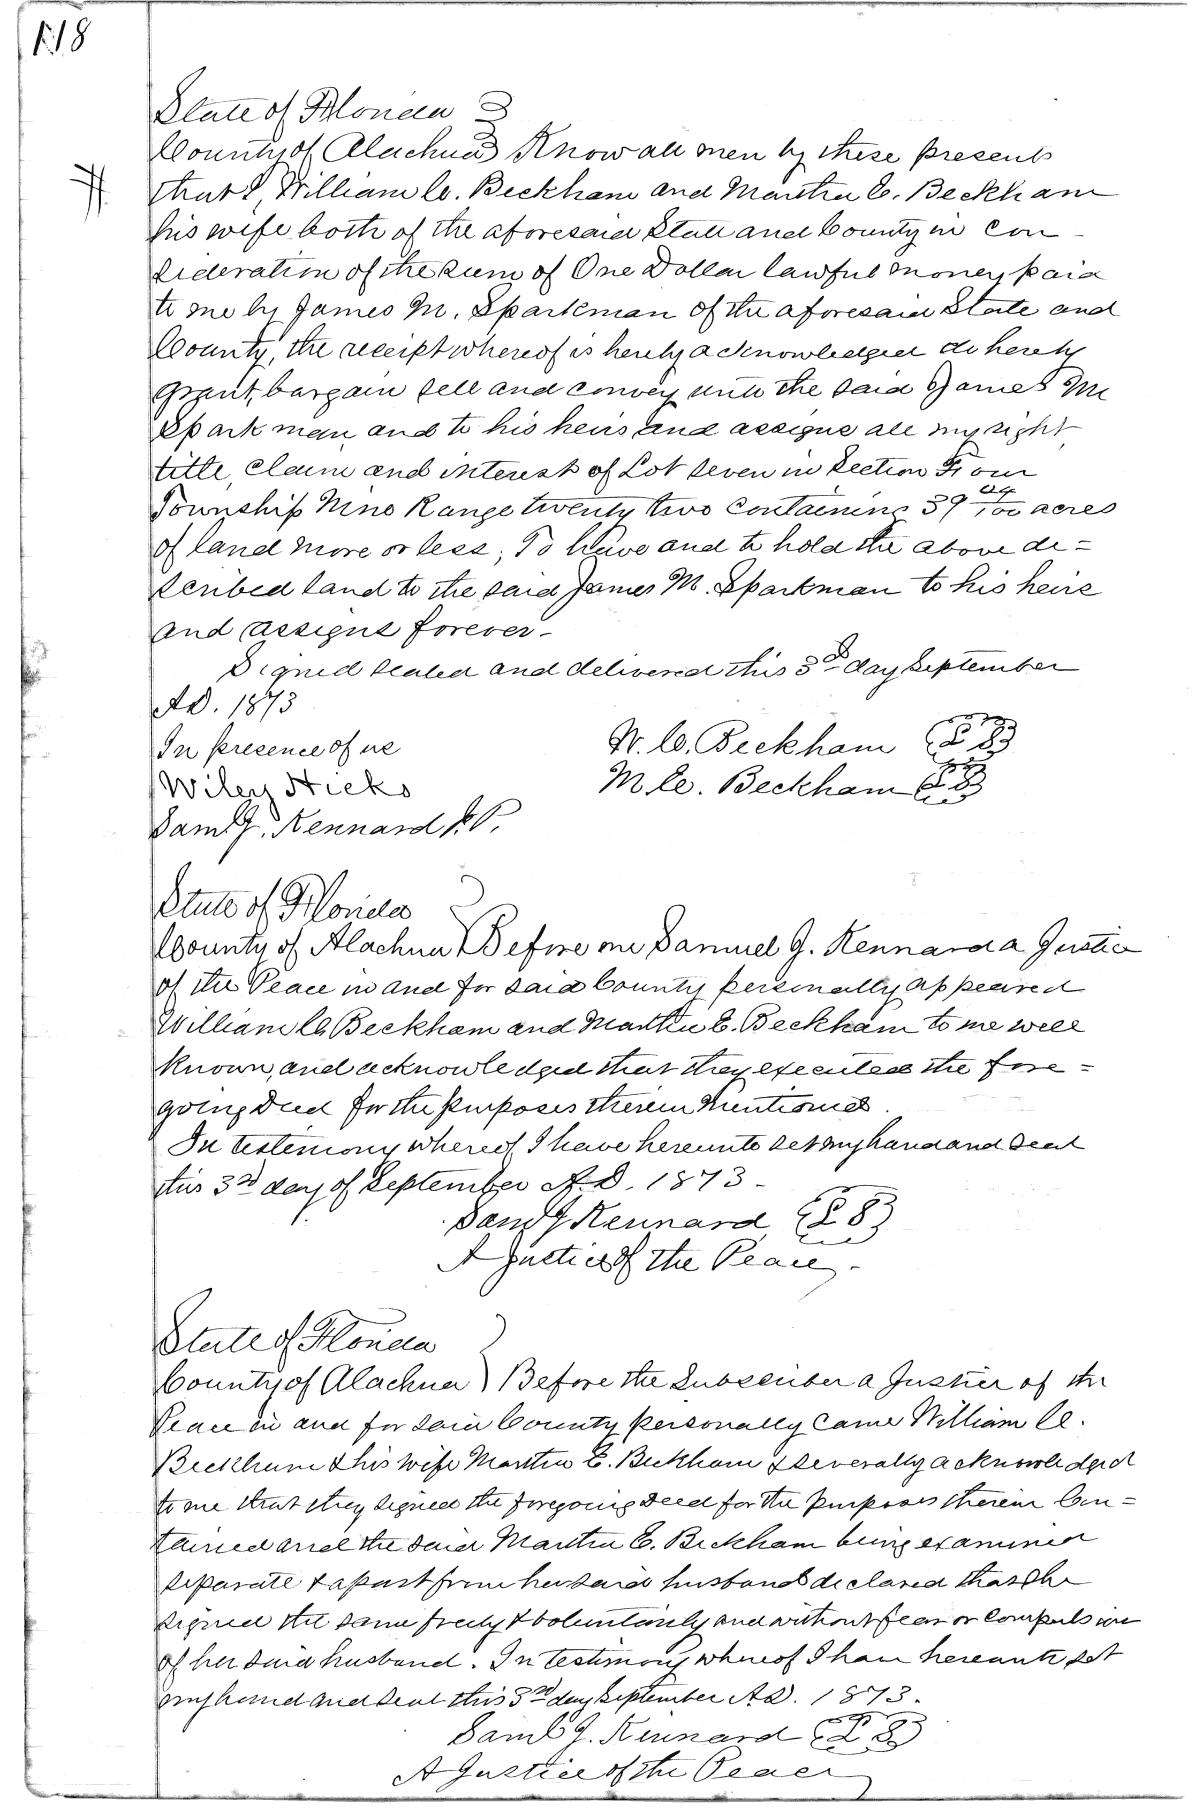 118
State of Florida }
County of Alachua } Know all men by these presents
that I, William C. Beckham and Martha E. Beckham
his wife both of the aforesaid State and County in con-
sideration of the sum of One Dollar lawful money paid
to me by James M. Sparkman of the aforesaid State and
County, the receipt whereof is hereby acknowledged do hereby
grant, bargain sell and convey unto the said James M
Sparkman and to his heirs and assigns all my right,
title, claim and interest of Lot seven in Section Four
Township Nine Range twenty two containing 39 04/100 acres
of land more or less, To have and to hold the above de=
scribed land to the said James M. Sparkman to his heirs
and assigns forever-
Signed sealed and delivered this 3d day September
AD. 1873
In presence of us W. C. Beckham (L S)
Wiley Hicks M. E. Beckham (L S)
Saml J. Kennard J.P.
State of Florida }
County of Alachua } Before me Samuel J. Kennard a Justice
of the Peace in and for said County personally appeared
William C Beckham and Martha E. Beckham to me well
known, and acknowledged that they executed the fore=
going Deed for the purposes therein mentioned.
In testimony whereof I have hereunto set my hand and seal
this 3rd day of September A.D. 1873-
Saml J Kennard (L S)
A Justice of the Peace.
State of Florida }
County of Alachua } Before the Subscriber a Justice of the
Peace in and for said County personally came William C.
Beckham & his wife Martha E. Beckham & severally acknowledged
to me that they signed the foregoing deed for the purposes therein Con=
tained and the said Martha E. Beckham being examined
separate & apart from her said husband declared that she
signed the same freely & voluntarily and without fear or compulsion
of her said husband. In testimony whereof I have hereunto set
my hand and seal this 3rd day September A.D. 1873.
Saml J. Kennard (L S)
A Justice of the Peace